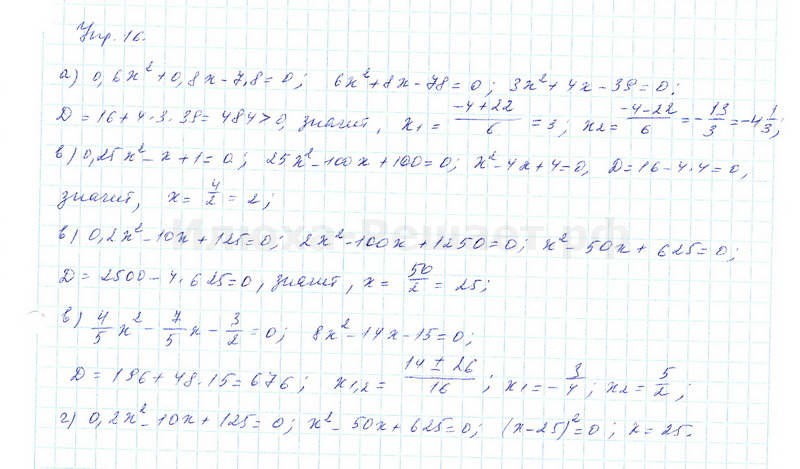 Упр. 16.
а) 0,6x² + 0,8x - 7,8 = 0; 6x² + 8x - 78 = 0; 3x² + 4x - 39 = 0;
D = 16 + 4·3·39 = 484 > 0, значит, x₁ = (-4+22)/6 = 3; x₂ = (-4-22)/6 = -13/3 = -4 1/3;
в) 0,25x² - x + 1 = 0; 25x² - 100x + 100 = 0; x² - 4x + 4 = 0, D = 16 - 4·4 = 0,
значит, x = 4/2 = 2;
в) 0,2x² - 10x + 125 = 0; 2x² - 100x + 1250 = 0; x² - 50x + 625 = 0;
D = 2500 - 4·625 = 0, значит, x = 50/2 = 25;
в) 4/5 x² - 7/5 x - 3/2 = 0; 8x² - 14x - 15 = 0;
D = 196 + 48·15 = 676; x₁,₂ = (14 ± 26)/16; x₁ = -3/4; x₂ = 5/2;
г) 0,2x² - 10x + 125 = 0; x² - 50x + 625 = 0; (x-25)² = 0; x = 25.